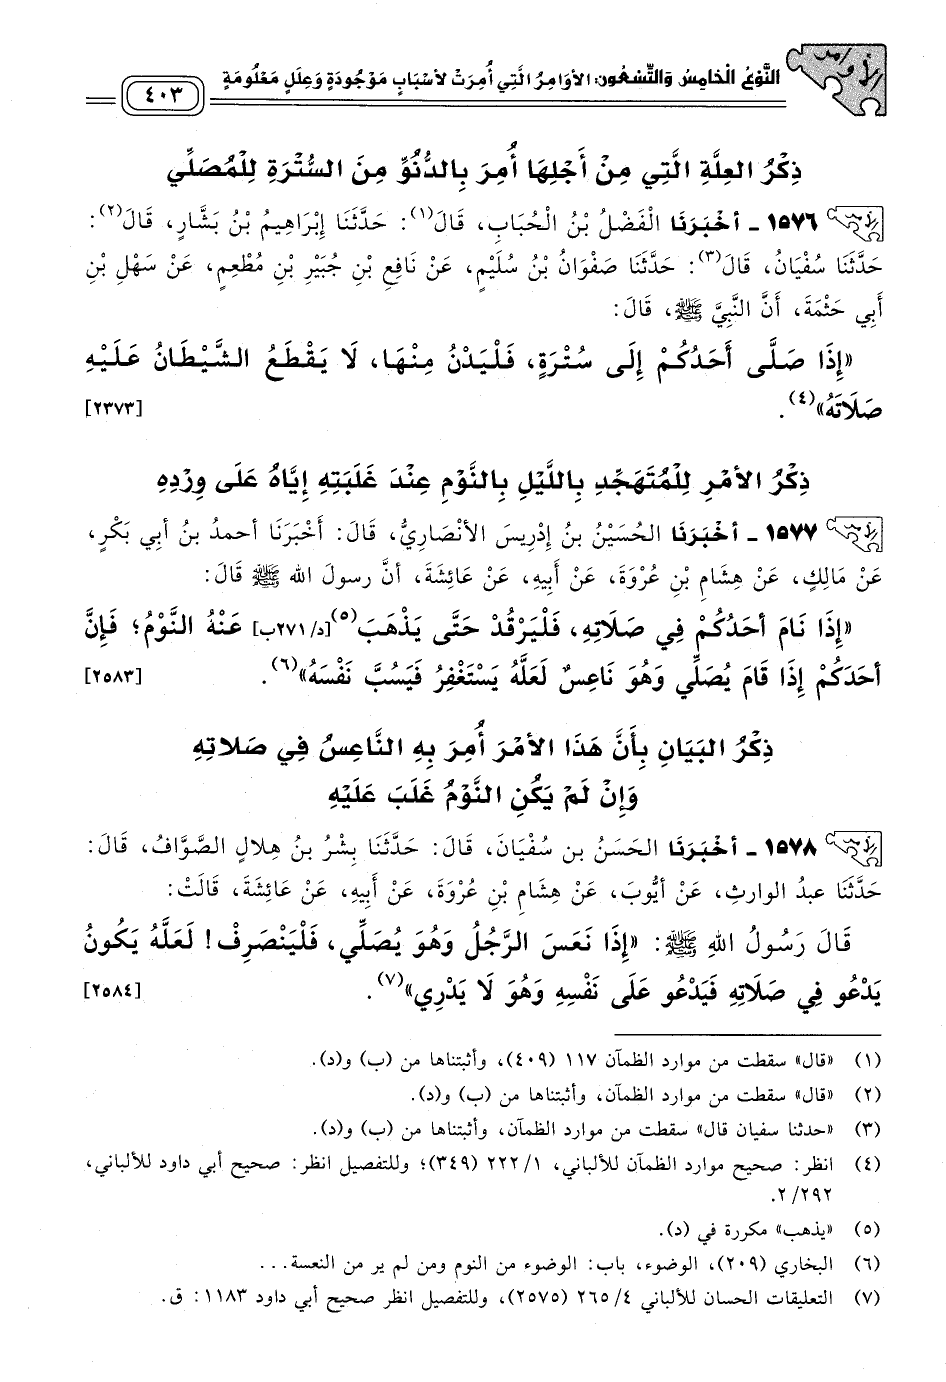 الأوامر
النَّوْعُ الْخَامِسُ وَالتِّسْعُونَ: الأوَامِرُ الَّتِي أُمِرَتْ لأسْبَابٍ مَوْجُودَةٍ وَعِلَلٍ مَعْلُومَةٍ
٤٠٣
ذِكْرُ العِلَّةِ الَّتِي مِنْ أَجْلِهَا أُمِرَ بِالدُّنُوِّ مِنَ السُّتْرَةِ لِلْمُصَلِّي
١٥٧٦ - أخْبَرَنَا الْفَضْلُ بْنُ الْحُبَابِ، قَالَ(١): حَدَّثَنَا إِبْرَاهِيمُ بْنُ بَشَّارٍ، قَالَ(٢):
حَدَّثَنَا سُفْيَانُ، قَالَ(٣): حَدَّثَنَا صَفْوَانُ بْنُ سُلَيْمٍ، عَنْ نَافِعِ بْنِ جُبَيْرِ بْنِ مُطْعِمٍ، عَنْ سَهْلِ بْنِ
أَبِي حَثْمَةَ، أَنَّ النَّبِيَّ ﷺ، قَالَ:
«إِذَا صَلَّى أَحَدُكُمْ إِلَى سُتْرَةٍ، فَلْيَدْنُ مِنْهَا، لَا يَقْطَعُ الشَّيْطَانُ عَلَيْهِ
صَلَاتَهُ»(٤). [٢٣٧٣]
ذِكْرُ الأمْرِ لِلْمُتَهَجِّدِ بِاللَّيْلِ بِالنَّوْمِ عِنْدَ غَلَبَتِهِ إِيَّاهُ عَلَى وِرْدِهِ
١٥٧٧ - أخْبَرَنَا الحُسَيْنُ بن إِدْرِيسَ الأنْصَارِيُّ، قَالَ: أَخْبَرَنَا أحمدُ بنُ أَبِي بَكْرٍ،
عَنْ مَالِكٍ، عَنْ هِشَامِ بْنِ عُرْوَةَ، عَنْ أَبِيهِ، عَنْ عَائِشَةَ، أنَّ رسولَ الله ﷺ قَالَ:
«إِذَا نَامَ أحَدُكُمْ فِي صَلَاتِهِ، فَلْيَرْقُدْ حَتَّى يَذْهَبَ(٥)[د/٢٧١ب] عَنْهُ النَّوْمُ؛ فَإِنَّ
أحَدَكُمْ إِذَا قَامَ يُصَلِّي وَهُوَ نَاعِسٌ لَعَلَّهُ يَسْتَغْفِرُ فَيَسُبَّ نَفْسَهُ»(٦). [٢٥٨٣]
ذِكْرُ البَيَانِ بِأَنَّ هَذَا الأمْرَ أُمِرَ بِهِ النَّاعِسُ فِي صَلاتِهِ
وَإِنْ لَمْ يَكُنِ النَّوْمُ غَلَبَ عَلَيْهِ
١٥٧٨ - أخْبَرَنَا الحَسَنُ بن سُفْيَانَ، قَالَ: حَدَّثَنَا بِشْرُ بنُ هِلالٍ الصَّوَّافُ، قَالَ:
حَدَّثَنَا عبدُ الوارثِ، عَنْ أيُّوبَ، عَنْ هِشَامِ بْنِ عُرْوَةَ، عَنْ أَبِيهِ، عَنْ عَائِشَةَ، قَالَتْ:
قَالَ رَسُولُ اللهِ ﷺ: «إِذَا نَعَسَ الرَّجُلُ وَهُوَ يُصَلِّي، فَلْيَنْصَرِفْ! لَعَلَّهُ يَكُونُ
يَدْعُو فِي صَلَاتِهِ فَيَدْعُو عَلَى نَفْسِهِ وَهُوَ لَا يَدْرِي»(٧). [٢٥٨٤]
(١) «قال» سقطت من موارد الظمآن ١١٧ (٤٠٩)، وأثبتناها من (ب) و(د).
(٢) «قال» سقطت من موارد الظمآن، وأثبتناها من (ب) و(د).
(٣) «حدثنا سفيان قال» سقطت من موارد الظمآن، وأثبتناها من (ب) و(د).
(٤) انظر: صحيح موارد الظمآن للألباني، ١/ ٢٢٢ (٣٤٩)؛ وللتفصيل انظر: صحيح أبي داود للألباني،
٢/ ٢٩٢.
(٥) «يذهب» مكررة في (د).
(٦) البخاري (٢٠٩)، الوضوء، باب: الوضوء من النوم ومن لم ير من النعسة...
(٧) التعليقات الحسان للألباني ٤/ ٢٦٥ (٢٥٧٥)، وللتفصيل انظر صحيح أبي داود ١١٨٣: ق.